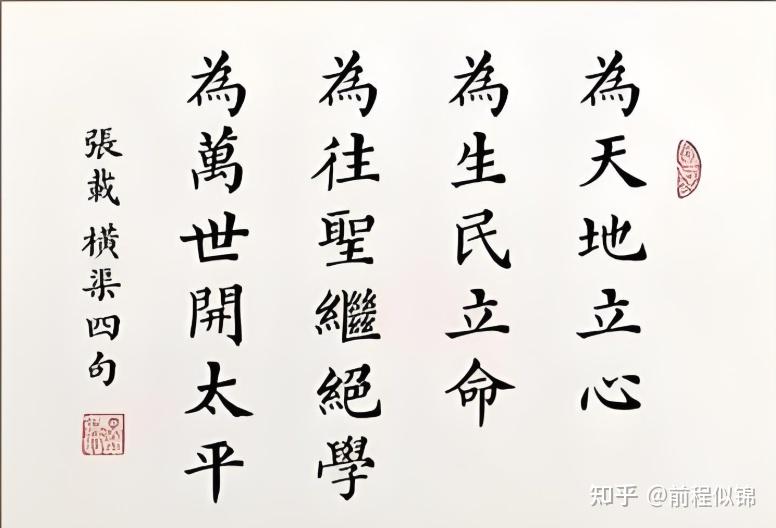 為天地立心
為生民立命
為往聖繼絕學
為萬世開太平
張載 橫渠四句
知乎 @前程似锦